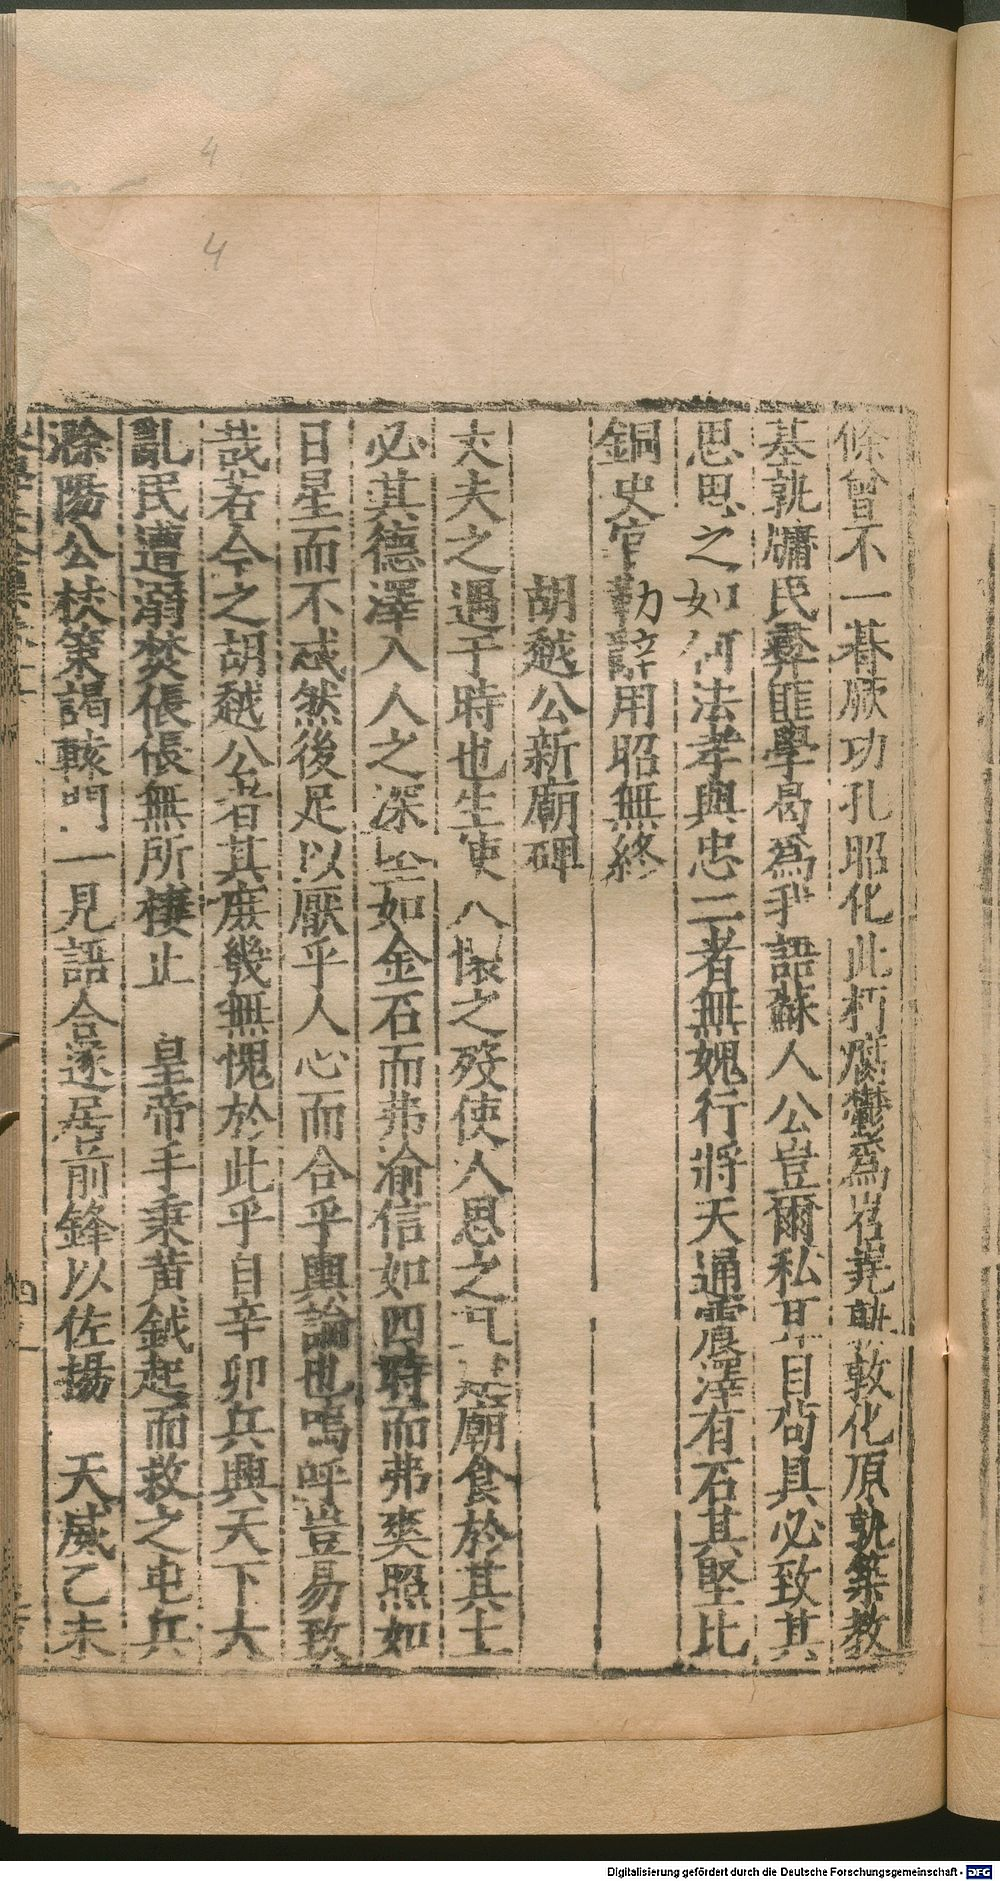 條曾不一朞厥功孔昭化此朽腐鬱為岧嶤斁敦化原孰築教
基孰牗民彝匪學曷為我語蘇人公豈爾私耳目尚具必致其
思思之如何法孝與忠二者無媿行將天通靈澤有石其堅比
銅史官勒辭用昭無終
胡越公新廟碑
大夫之遇于時也生使人懷之歿使人思之廟食於其土
必其德澤入人之深堅如金石而弗渝信如四時而弗爽照如
日星而不忒然後足以厭乎人心而合乎輿論也嗚呼豈易致
哉若今之胡越公者其庶幾無愧於此乎自辛卯兵興天下大
亂民遭溺焚倀倀無所棲止 皇帝手秉黃鉞起而救之屯兵
滁陽公杖策謁轅門一見語合遂居前鋒以佐揚 天威乙未
4
4
Digitalisierung gefördert durch die Deutsche Forschungsgemeinschaft - DFG